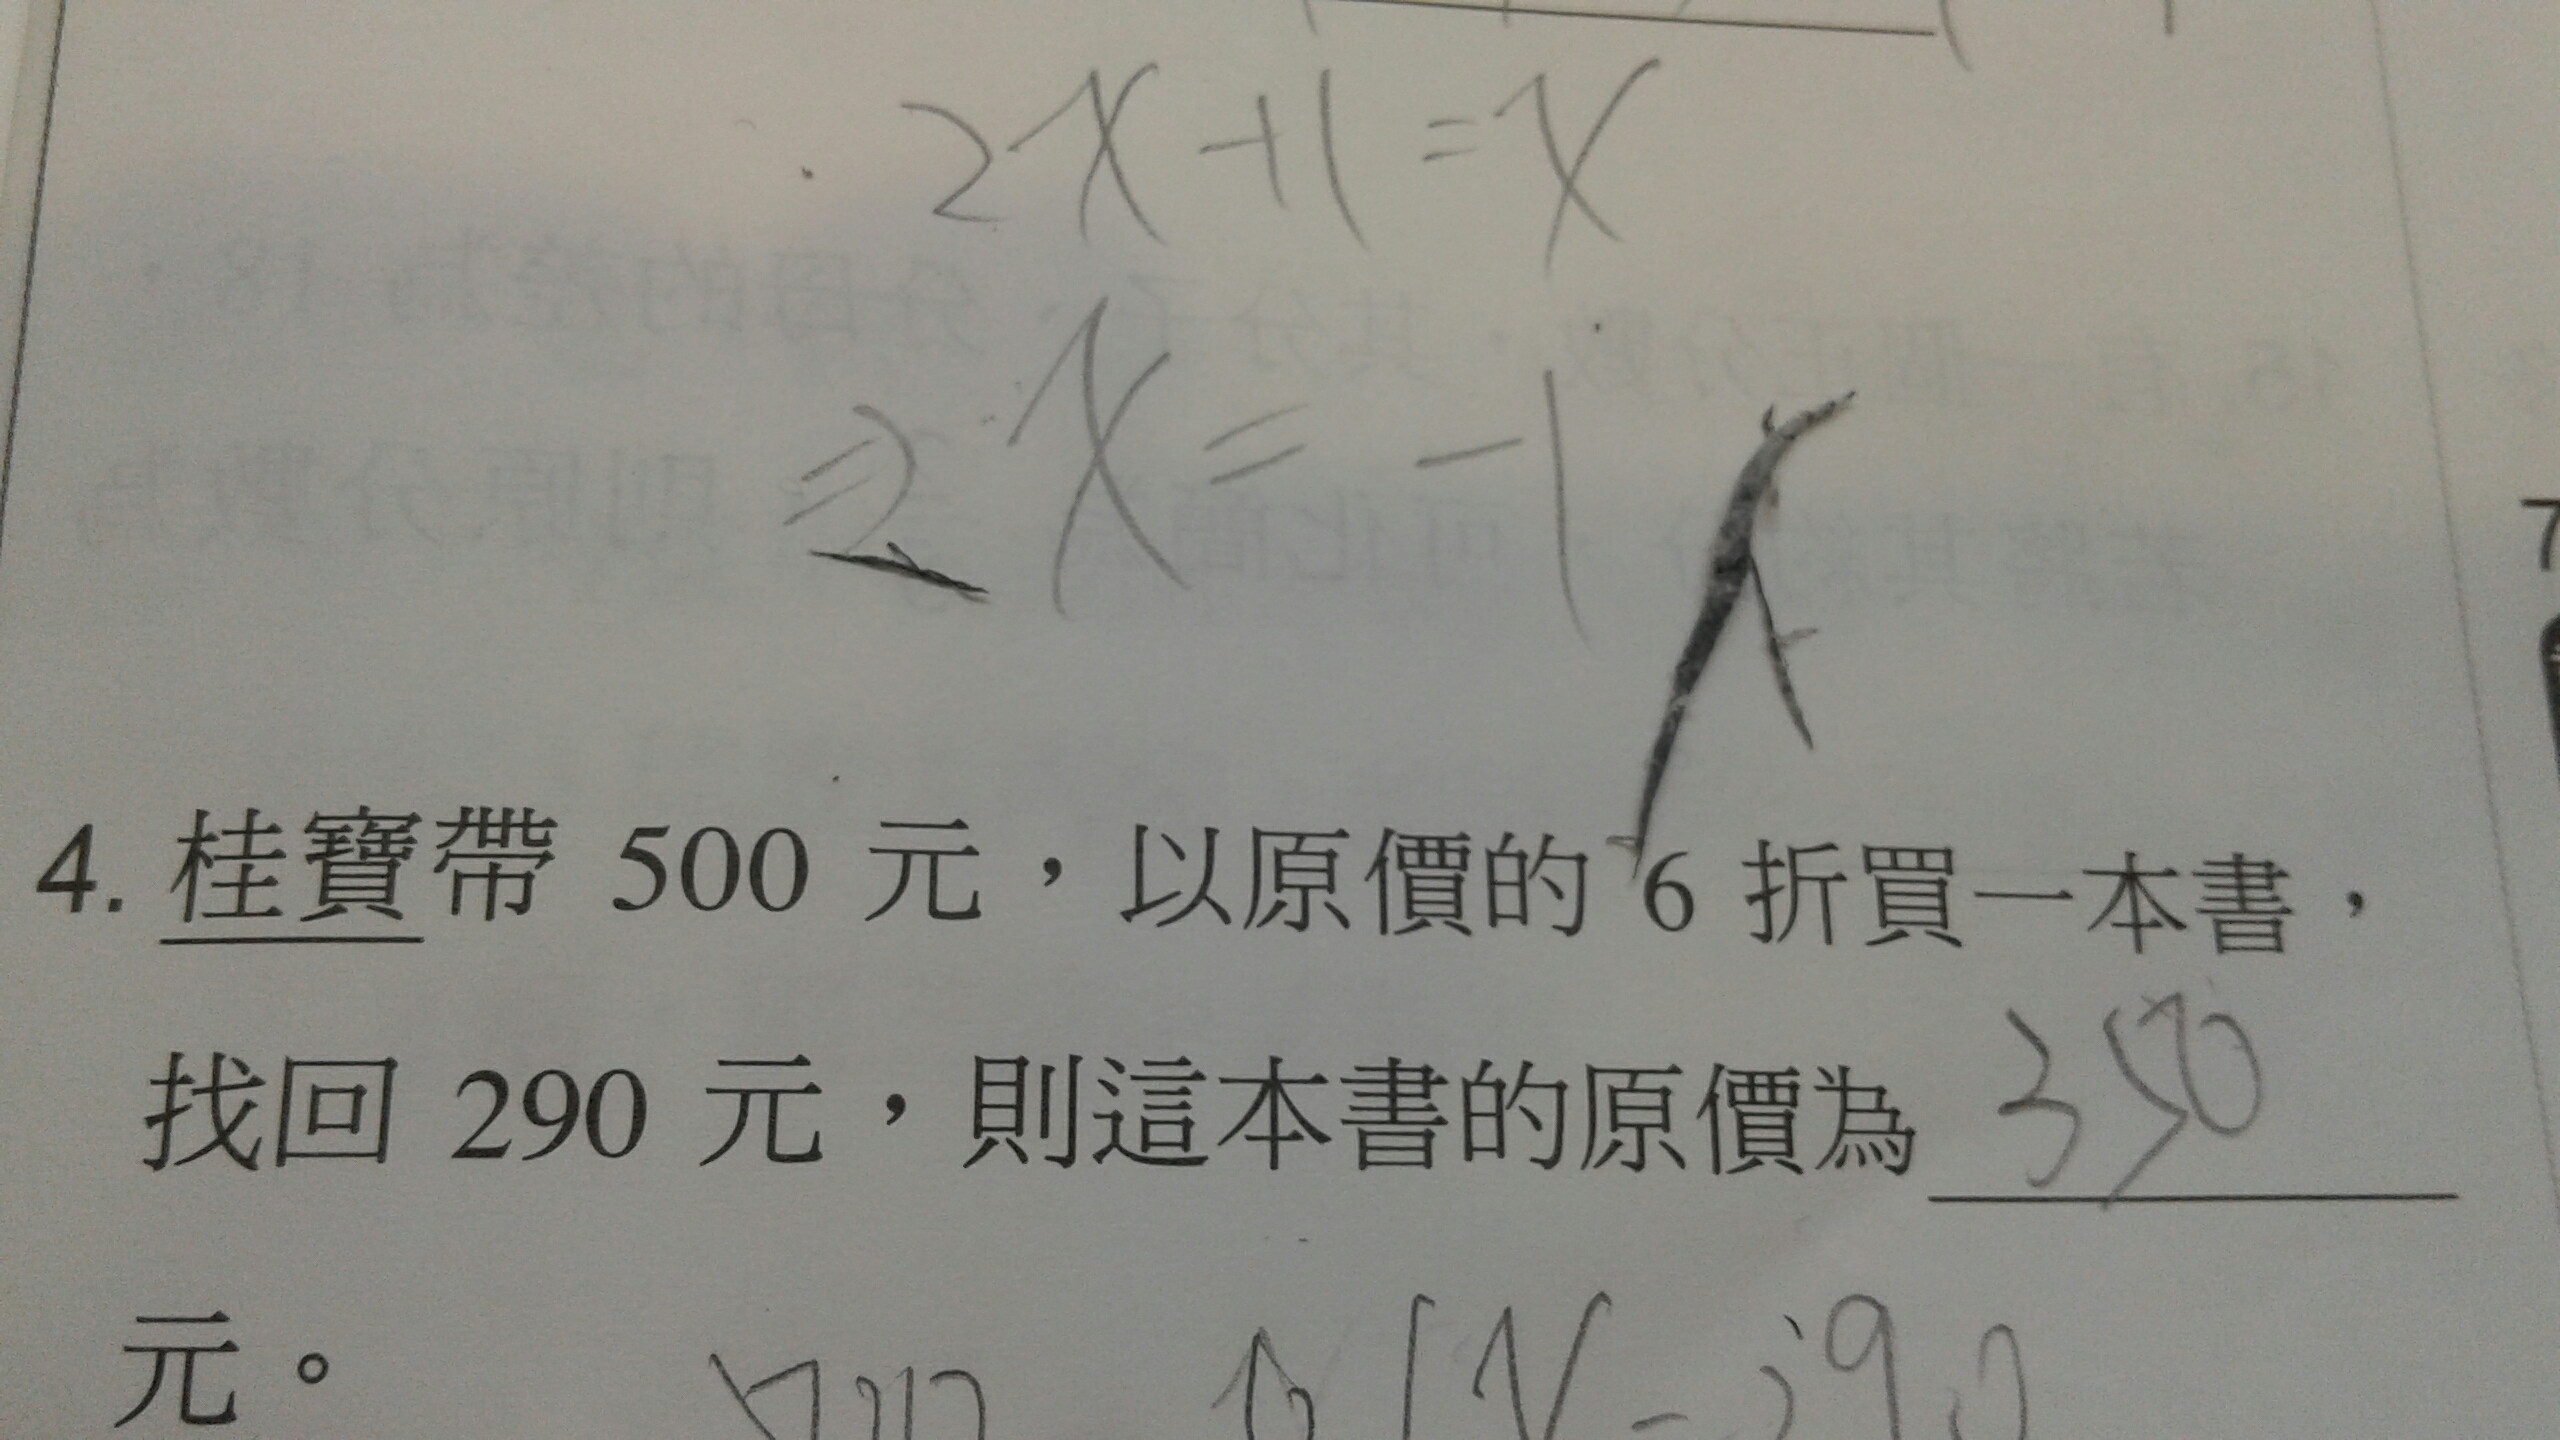 2x+1=x
2x=-1
4. 桂寶帶 500 元，以原價的 6 折買一本書，
找回 290 元，則這本書的原價為 350
元。